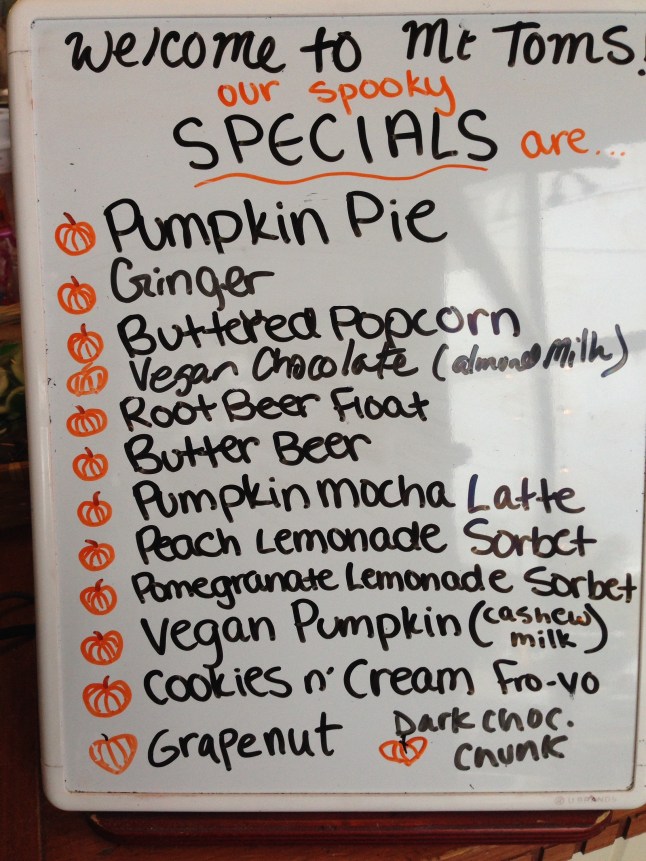 Welcome to Mt Toms!
our spooky
SPECIALS are...
Pumpkin Pie
Ginger
Buttered Popcorn
Vegan Chocolate (almond milk)
Root Beer Float
Butter Beer
Pumpkin mocha Latte
Peach Lemonade Sorbet
Pomegranate Lemonade Sorbet
Vegan Pumpkin (cashew milk)
Cookies n' Cream Fro-yo
Grapenut
Dark choc.
Chunk